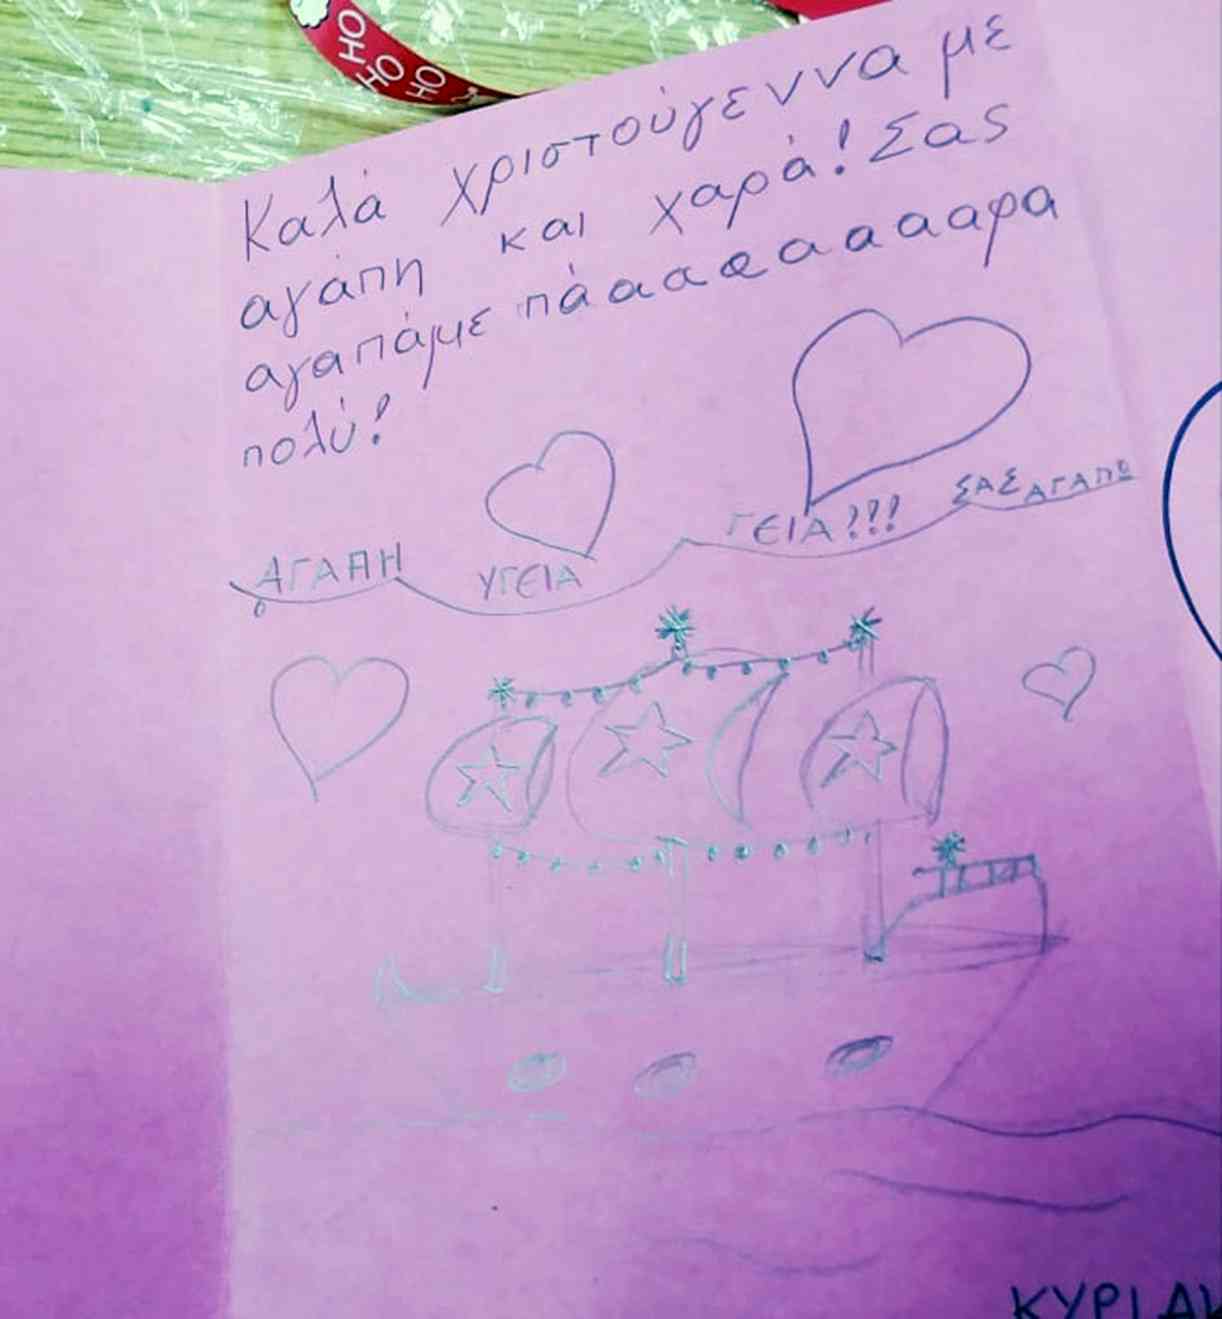 HO
HO
HO
Καλά Χριστούγεννα με
αγάπη και χαρά! Σας
αγαπάμε πάααααααάρα
πολύ!
ΑΓΑΠΗ
ΥΓΕΙΑ
ΓΕΙΑ!!!
ΣΑΣ ΑΓΑΠΩ